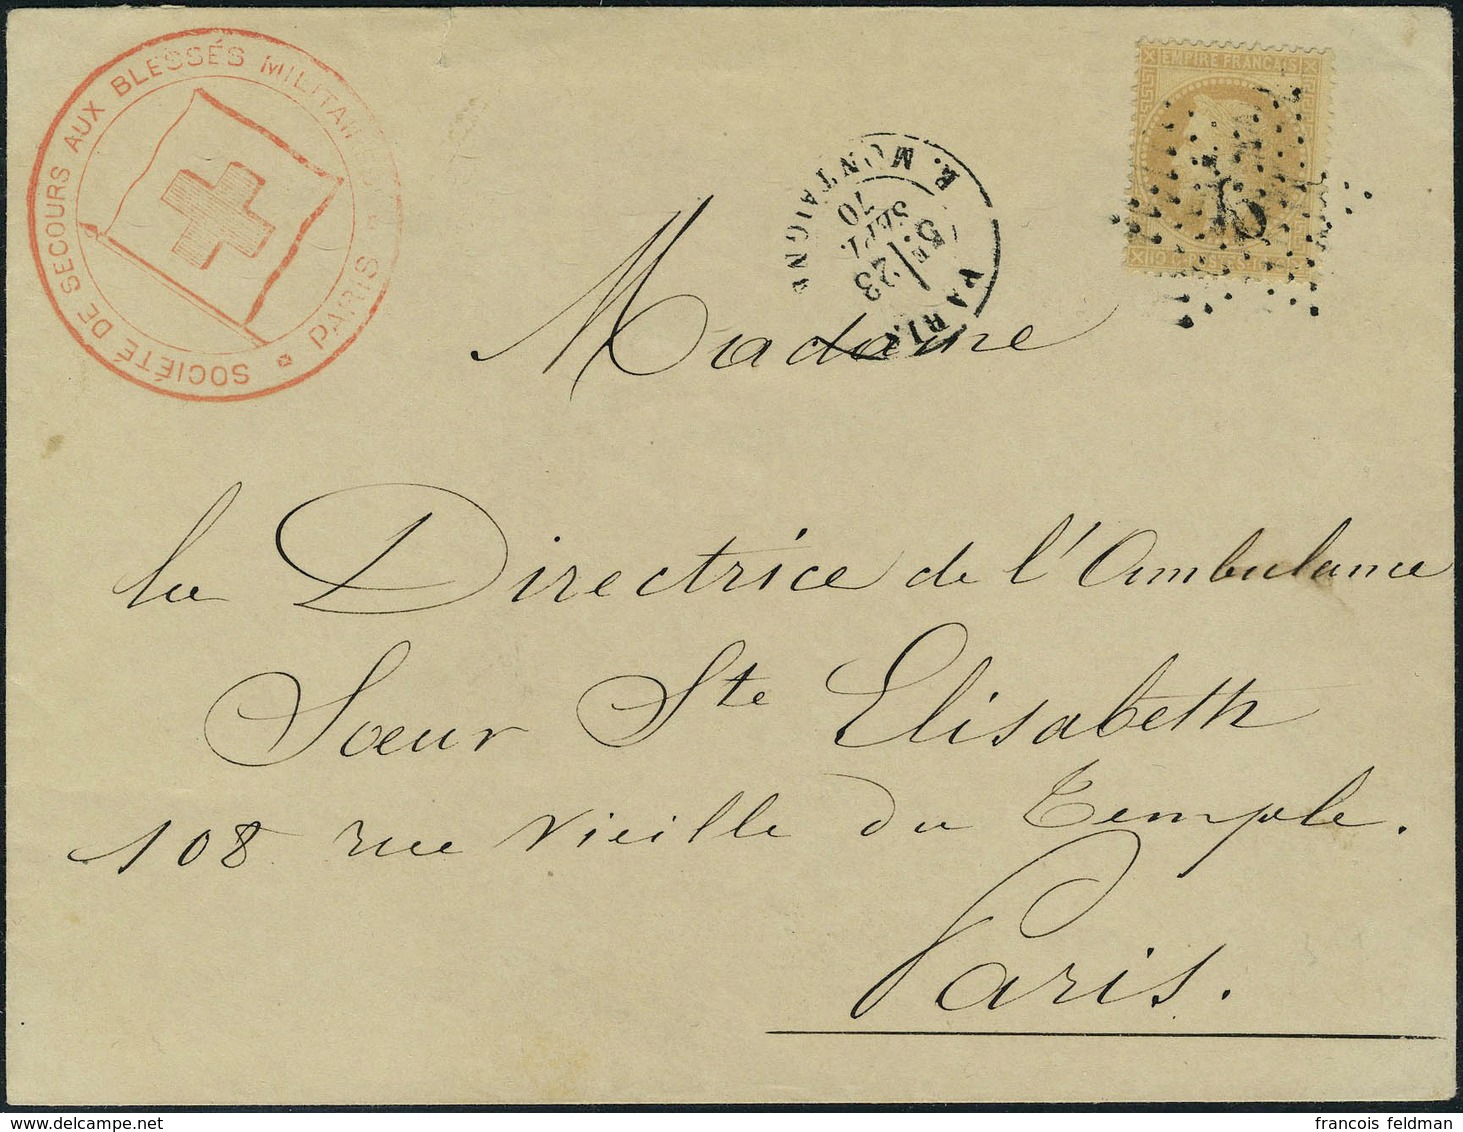 SOCIÉTÉ DE SECOURS AUX BLESSÉS MILITAIRES
PARIS
EMPIRE FRANÇAIS
PARIS
R. MONTAIGNE
5E
23
SEPT.
70
Madame
la Directrice de l'Ambulance
Sœur Ste Elisabeth
108 rue vieille du Temple.
Paris.
francois feldman